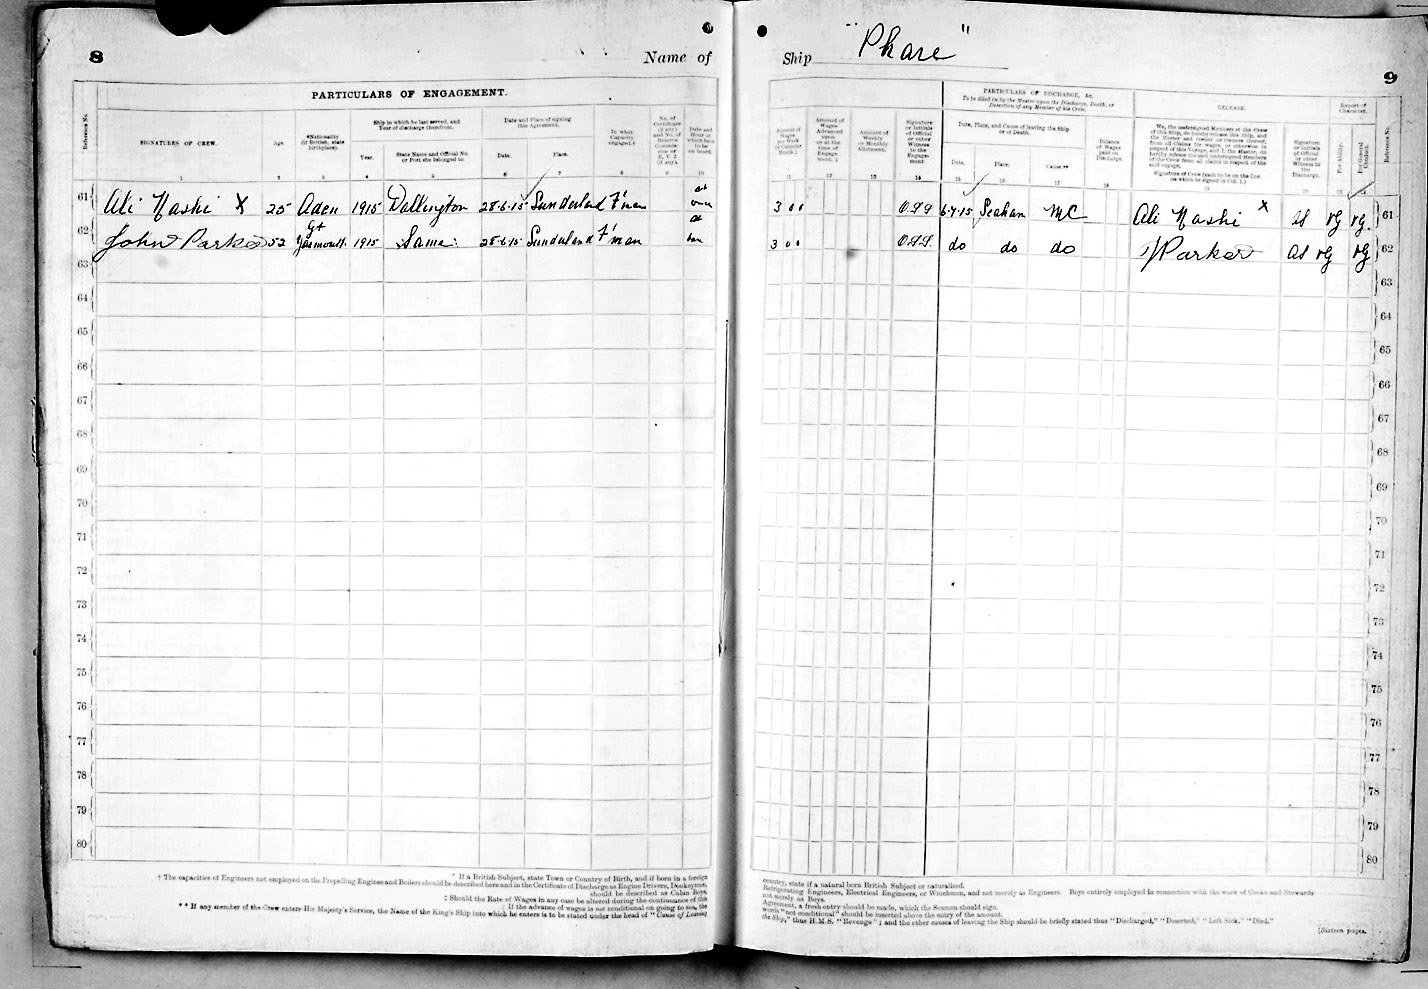 8
Name of
Ship "Phare"
9
PARTICULARS OF ENGAGEMENT.
PARTICULARS OF DISCHARGE, &c.
To be filled in by the Master upon the Discharge, Death, or
Desertion of any Member of his Crew.
RELEASE.
Report of
Character.
Reference No.
SIGNATURES OF CREW.
Age.
*Nationality
(if British, state
birthplace).
Ship in which he last served, and
Year of discharge therefrom.
Year.
State Name and Official No.
or Port she belonged to.
Date and Place of signing
this Agreement.
Date.
Place.
In what
Capacity
engaged.†
No. of
Certificate
(if any)
and No. of
Reserve
Commis-
sion or
R.V. 2
(if any).
Date and
Hour at
which he is
to be
on board.
Amount of
Wages
per Week
or Calendar
Month.‡
Amount of
Wages
Advanced
upon
or at the
time of
Engage-
ment.
Amount of
Weekly
or Monthly
Allotment.
Signature
or Initials
of Official
or other
Witness
to the
Engage-
ment
Date, Place, and Cause of leaving the Ship
or of Death.
Date.
Place.
Cause.**
Balance
of Wages
paid on
Discharge.
We, the undersigned Members of the Crew
of this Ship, do hereby release this Ship, and
the Master and Owner or Owners thereof,
from all Claims for wages, or otherwise in
respect of this Voyage, and I, the Master, do
hereby release the said undersigned Members
of the Crew from all claims in respect of the
said voyage.
Signature of Crew (each to be on the line
on which he signed in Col. 1.)
Signature
or Initials
of Official
or other
Witness to
the
Discharge.
For Ability.
For General
Conduct.
Reference No.
1 2 3 4 5 6 7 8 9 10 11 12 13 14 15 16 17 18 19 20 21
61 Ali Nashi X 25 Aden 1915 Dallington 28-6-15 Sunderland F'man at once 3 0 0 6-7-15 Seaham MC Ali Nashi X VG VG. 61
62 John Parker 52 Gt Yarmouth 1915 Same 28-6-15 Sunderland F'man at 3 0 0 do do do J Parker VG VG 62
63 63
64 64
65 65
66 66
67 67
68 68
69 69
70 70
71 71
72 72
73 73
74 74
75 75
76 76
77 77
78 78
79 79
80 80
* If a British Subject, state Town or Country of Birth, and if born in a foreign
country, state if a natural born British Subject or naturalized.
† The capacities of Engineers not employed on the Propelling Engines and Boilers should be described here and in the Certificate of Discharge as Engine Drivers, Donkeymen,
Refrigerating Engineers, Electrical Engineers, or Winchmen, and not merely as Engineers. Boys entirely employed in connection with the work of Cooks and Stewards
should be described as Cabin Boys,
not merely as Boys.
‡ Should the Rate of Wages in any case be altered during the continuance of this
Agreement, a fresh entry should be made, which the Seamen should sign.
If the advance of wages is not conditional on going to sea, the
words "not conditional" should be inserted above the entry of the amount.
** If any member of the Crew enters His Majesty's Service, the Name of the King's Ship into which he enters is to be stated under the head of "Cause of Leaving
the Ship," thus H.M.S. "Revenge"; and the other causes of leaving the Ship should be briefly stated thus "Discharged," "Deserted," "Left Sick," "Died."
[Sixteen pages.